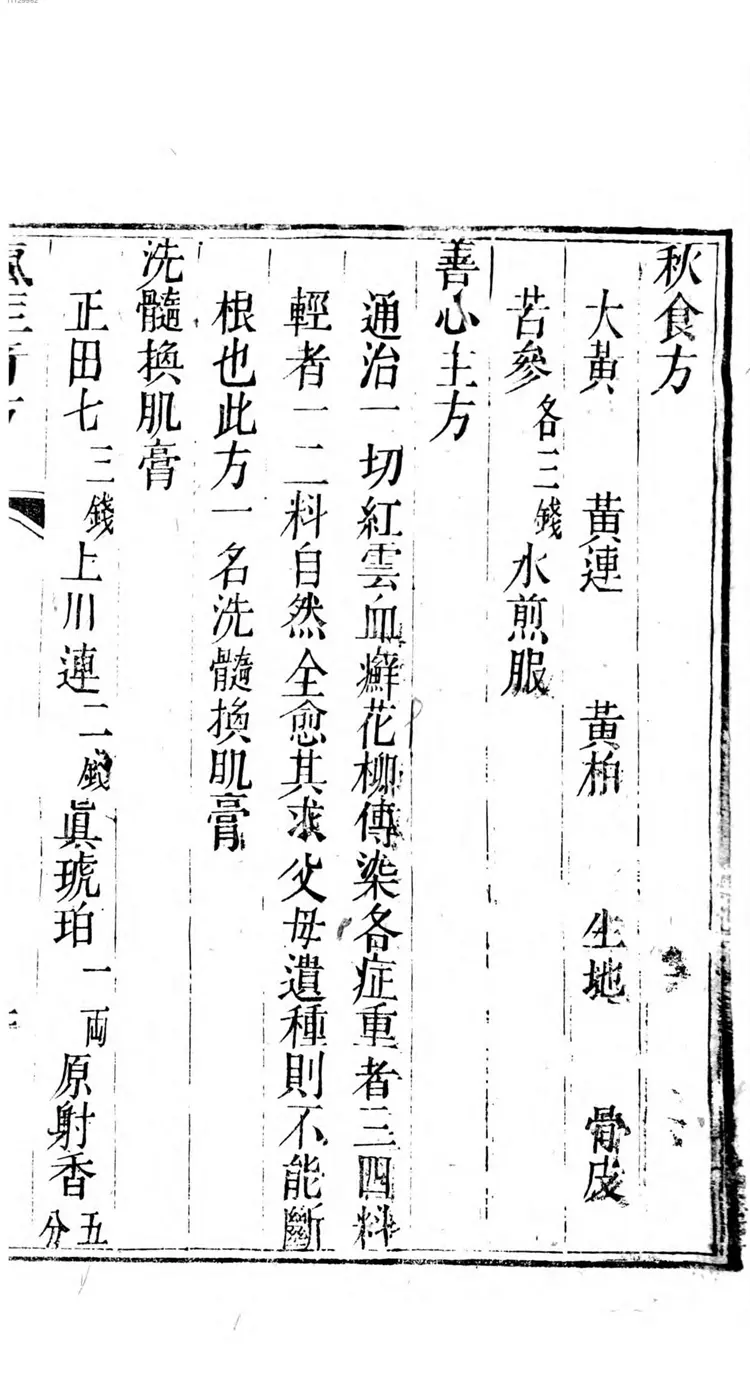 秋食方
大黃 黃連 黃柏 生地 骨皮
苦參各三錢水煎服
善心主方
通治一切紅雲血癬花柳傳染各症重者三四料
輕者一二料自然全愈其求父母遺種則不能斷
根也此方一名洗髓換肌膏
洗髓換肌膏
正田七三錢上川連二錢眞琥珀一両原射香五分